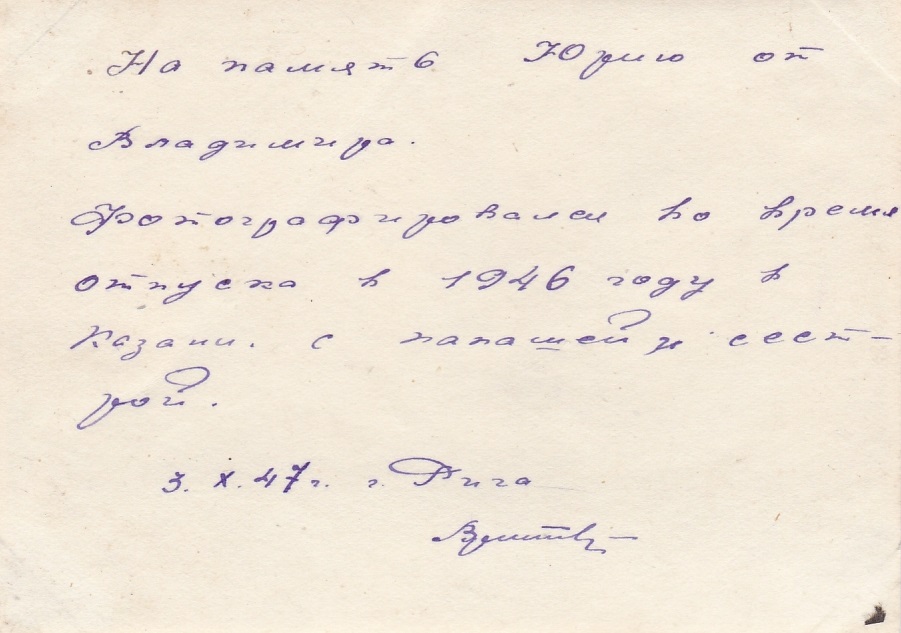 На память Юрию от
Владимира.
Фотографировался во время
отпуска в 1946 году в
Казани. с папашей и сест-
рой.
3. X. 47 г. г. Рига